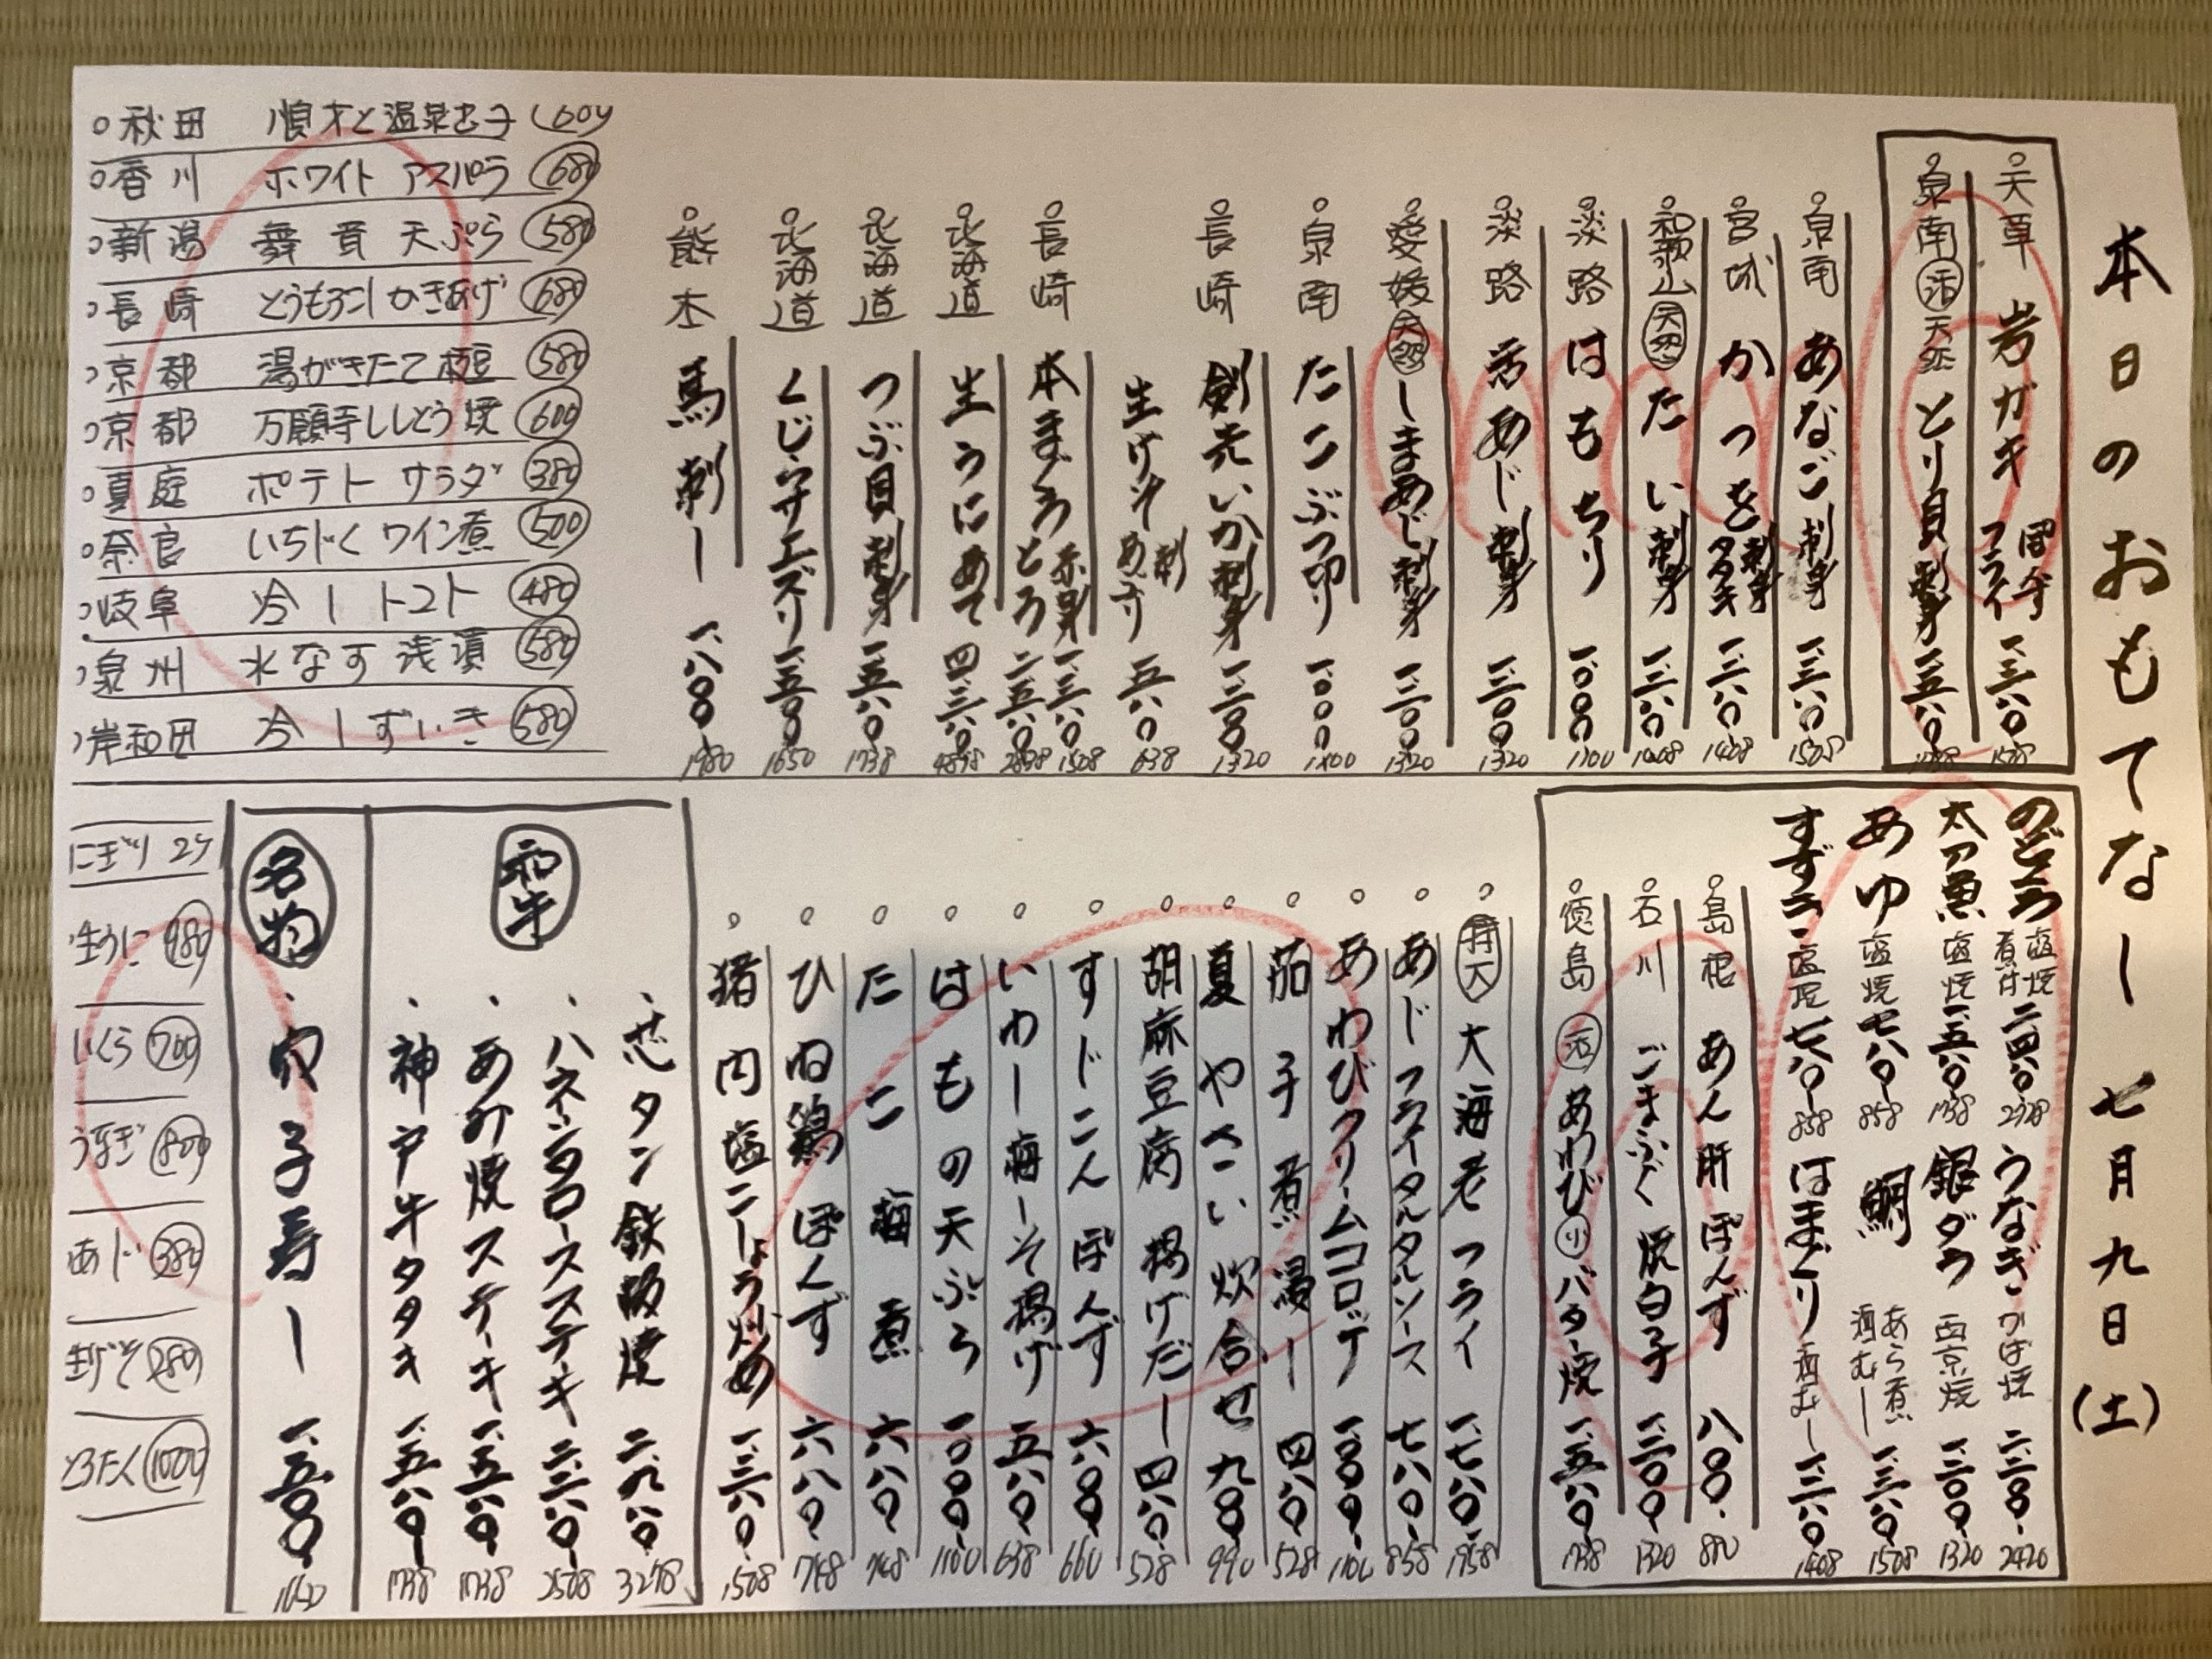 本日のおもてなし 七月九日(土)
天草 岩ガキ ぽん酢 フライ 一、三八〇 1508
泉南 活 天然 とり貝 刺身 一、五八〇 1738
泉南 あなご 刺身 一、三八〇 1508
宮城 かつを 刺身 タタキ 一、二八〇 1408
和歌山 天然 たい 刺身 一、二八〇 1408
淡路 はもちり 一、〇〇〇 1100
淡路 活あじ 刺身 一、二〇〇 1320
愛媛 天然 しまあじ 刺身 一、二〇〇 1320
泉南 たこぶつ切り 一、〇〇〇 1100
長崎 剣先いか 刺身 一、二〇〇 1320
生げそ 刺 五八〇 638
長崎 本まぐろ 赤身 一、三八〇 1508 とろ 二、五八〇 2838
北海道 生うに あて 四、三八〇 4818
北海道 つぶ貝 刺身 一、五八〇 1738
北海道 くじらサエズリ 一、五〇〇 1650
熊本 馬刺し 一、八〇〇 1980
秋田 順才と温泉玉子 600
香川 ホワイトアスパラ 680
新潟 舞茸天ぷら 580
長崎 とうもろこしかきあげ 680
京都 湯がきたて枝豆 580
京都 万願寺ししとう焼 600
夏庭 ポテトサラダ 380
奈良 いちじくワイン煮 500
岐阜 冷しトマト 480
泉州 水なす浅漬 580
岸和田 冷しずいき 580
のどぐろ 塩焼 煮付 二、四八〇 2728 うなぎ かば焼 二、二〇〇 2420
太刀魚 塩焼 一、五八〇 1738 銀ダラ 西京焼 一、二〇〇 1320
あゆ 塩焼 七八〇 858 鯛 あら煮 酒むし 一、三八〇 1508
すずき 塩焼 七八〇 858 はまぐり 酒むし 一、二八〇 1408
島根 あん肝ぽんず 八〇〇 880
石川 ごまふぐ焼白子 一、二〇〇 1320
徳島 活 あわび 小 バター焼 一、五八〇 1738
特大 大海老フライ 一、七八〇 1958
あじフライタルタルソース 七八〇 858
あわびクリームコロッケ 一、〇〇〇 1100
茄子煮浸し 四八〇 528
夏やさい炊合せ 九〇〇 990
胡麻豆腐揚げだし 四八〇 528
すじこんぽんず 六〇〇 660
いわし梅しそ揚げ 五八〇 638
はもの天ぷら 一、〇〇〇 1100
たこ梅煮 六八〇 748
ひね鶏ぽんず 六八〇 748
猪肉塩こしょう炒め 一、三八〇 1508
和牛
芯タン鉄板焼 二、九八〇 3278
ハネシタロースステーキ 二、二八〇 2508
あみ焼ステーキ 一、五八〇 1738
神戸牛タタキ 一、五八〇 1738
名物 穴子寿し 一、五〇〇 1650
にぎり 2ケ
生うに 980
いくら 700
うなぎ 800
あじ 380
生げそ 280
とろたく 1000